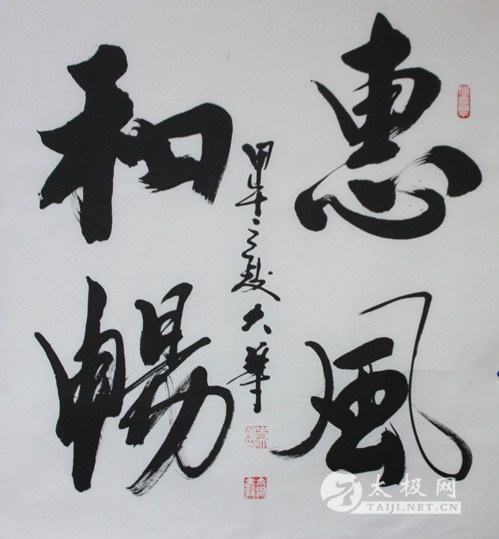 惠風
和暢
甲午之秋大華
太极网
TAIJI.NET.CN